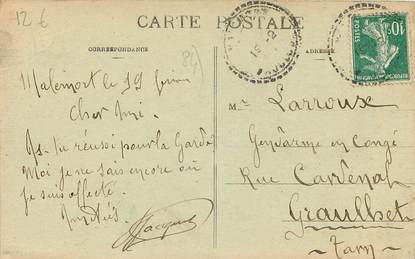 12 €
CARTE POSTALE
CORRESPONDANCE
ADRESSE
10c
POSTES
84
Malemort le 19
Cher Ami.
As-tu réussi pour la Garde?
Moi je ne sais encore où
je suis affecté.
Amitiés.
Jacques
Mr Larroux
Gendarme en Congé
Rue Cardenal
Graulhet
Tarn